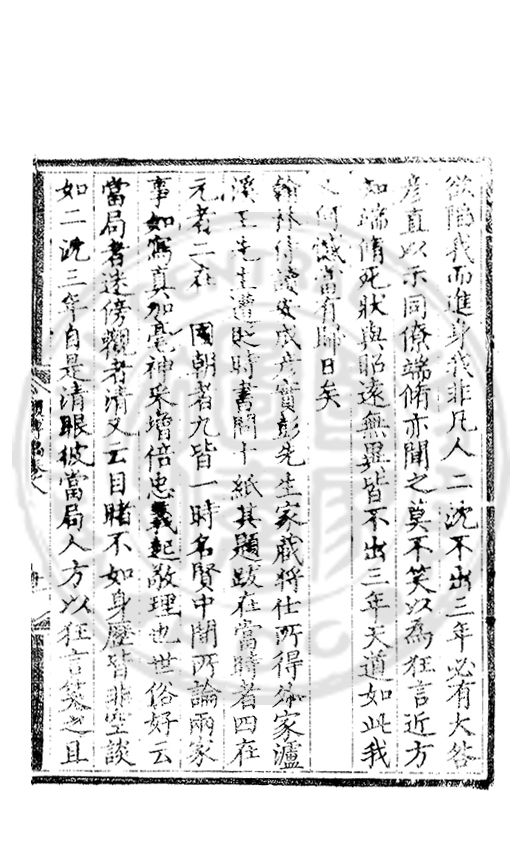 欲陷我而進身我非凡人二沈不出三年必有大咎
彥直以示同僚端脩亦聞之莫不笑以為狂言近方
知端脩死狀與昭遠無異皆不出三年天道如此我
何憾當有歸日矣
翰林侍讀安成彥實彭先生家藏將仕所得於家瀘
溪王先生遭貶時書關十紙其題跋在當時者四在
元者二在 國朝者九皆一時名賢中間所論兩家
事如寫真加毫神采增倍忠義起敬理也世俗好云
當局者迷傍觀者清又云目睹不如身歷皆非空談
如二沈三年自是清眼彼當局人方以狂言笑之且